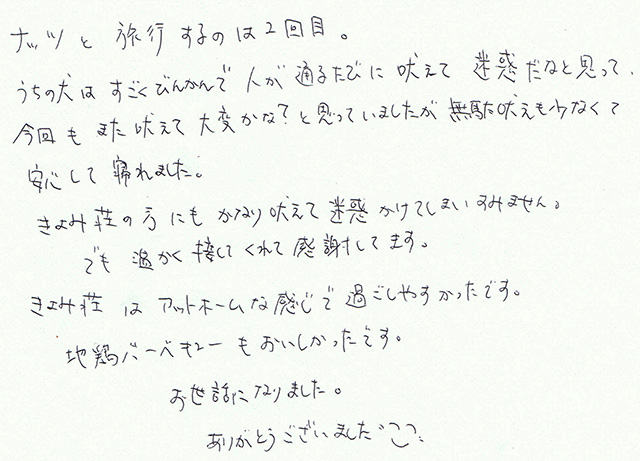 ナッツと旅行するのは2回目。
うちの犬はすごくびんかんで人が通るたびに吠えて迷惑だなと思って、
今回もまた吠えて大変かな?と思っていましたが無駄吠えも少なくて
安心して寝れました。
きよみ荘の方にもかなり吠えて迷惑かけてしまいすみません。
でも温かく接してくれて感謝してます。
きよみ荘はアットホームな感じで過ごしやすかったです。
地鶏バーベキューもおいしかったです。
お世話になりました。
ありがとうございました